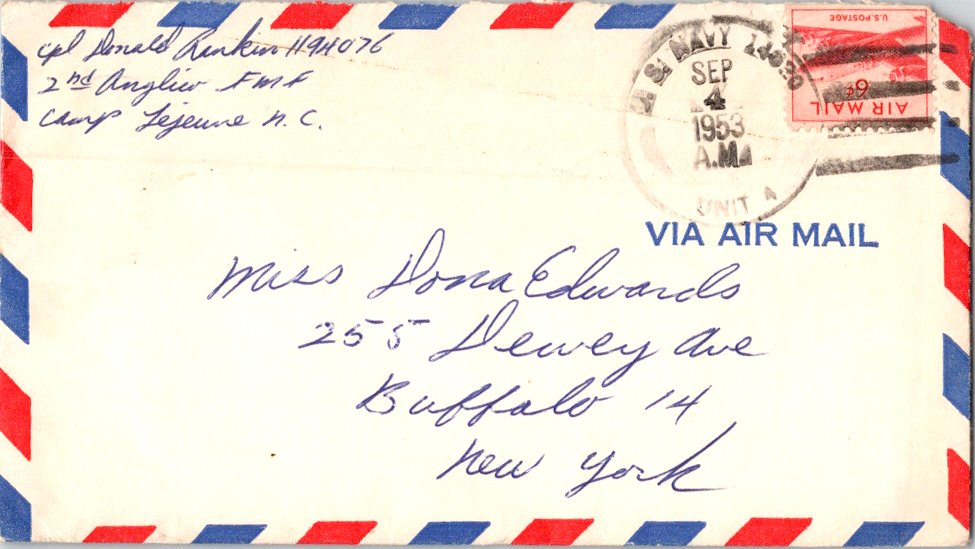 Cpl Donald Rankin 1194076
2nd Anglico FMF
Camp Lejeune N.C.
U.S. NAVY
SEP
4
1953
A.M.
UNIT A
U.S. POSTAGE
6¢
AIR MAIL
VIA AIR MAIL
Miss Dona Edwards
255 Dewey Ave
Buffalo 14
New York